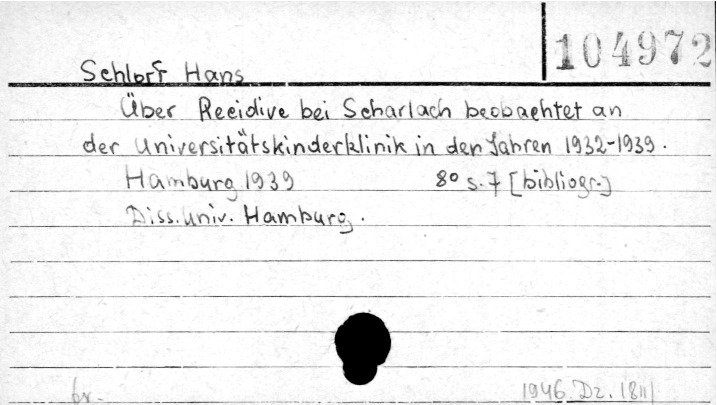 104972
Schlorf Hans
Über Recidive bei Scharlach beobachtet an
der Universitätskinderklinik in den Jahren 1932-1939.
Hamburg 1939 8° s. 7 [bibliogr.]
Diss. Univ. Hamburg.
br. 1946. Dz.